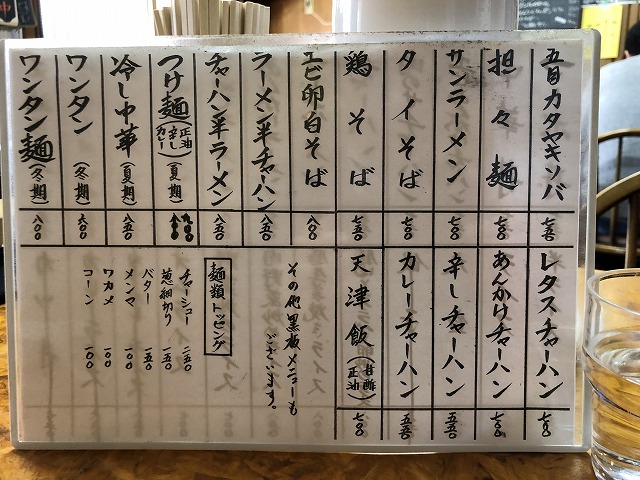 五目カタヤキソバ 七五〇
担々麺 七〇〇
サンラーメン 七〇〇
タイそば 七〇〇
鶏そば 七五〇
エビ卵白そば 八〇〇
ラーメン半チャーハン 八五〇
チャーハン半ラーメン 八五〇
つけ麺(正油 辛し カレー)(夏期)
冷し中華(夏期) 八五〇
ワンタン(冬期) 六〇〇
ワンタン麺(冬期) 八〇〇
レタスチャーハン 七〇〇
あんかけチャーハン 七〇〇
辛しチャーハン 五五〇
カレーチャーハン 五五〇
天津飯(甘酢 正油) 七〇〇
その他黒板メニューも
ございます。
麺類トッピング
チャーシュー 二五〇
葱細切り 一五〇
バター 一五〇
メンマ 一〇〇
ワカメ 一〇〇
コーン 一〇〇